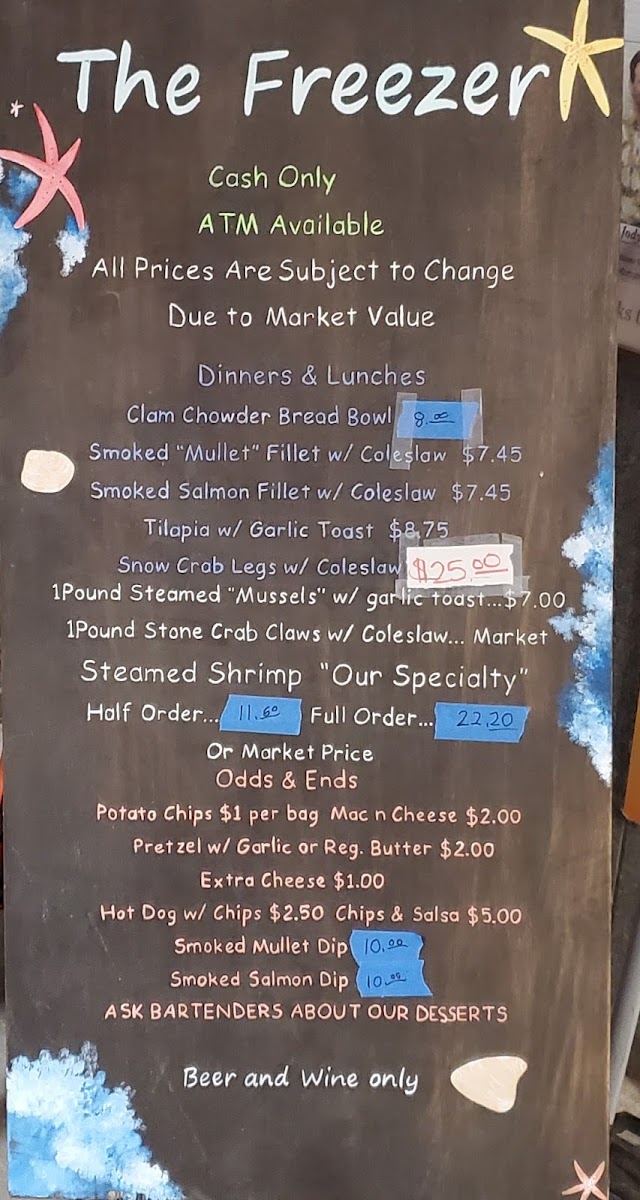 The Freezer
Cash Only
ATM Available
All Prices Are Subject to Change
Due to Market Value
Dinners & Lunches
Clam Chowder Bread Bowl 8.00
Smoked "Mullet" Fillet w/ Coleslaw $7.45
Smoked Salmon Fillet w/ Coleslaw $7.45
Tilapia w/ Garlic Toast $8.75
Snow Crab Legs w/ Coleslaw $25.00
1Pound Steamed "Mussels" w/ garlic toast...$7.00
1Pound Stone Crab Claws w/ Coleslaw... Market
Steamed Shrimp "Our Specialty"
Half Order... 11.60 Full Order... 22.20
Or Market Price
Odds & Ends
Potato Chips $1 per bag Mac n Cheese $2.00
Pretzel w/ Garlic or Reg. Butter $2.00
Extra Cheese $1.00
Hot Dog w/ Chips $2.50 Chips & Salsa $5.00
Smoked Mullet Dip 10.00
Smoked Salmon Dip 10.00
ASK BARTENDERS ABOUT OUR DESSERTS
Beer and Wine only